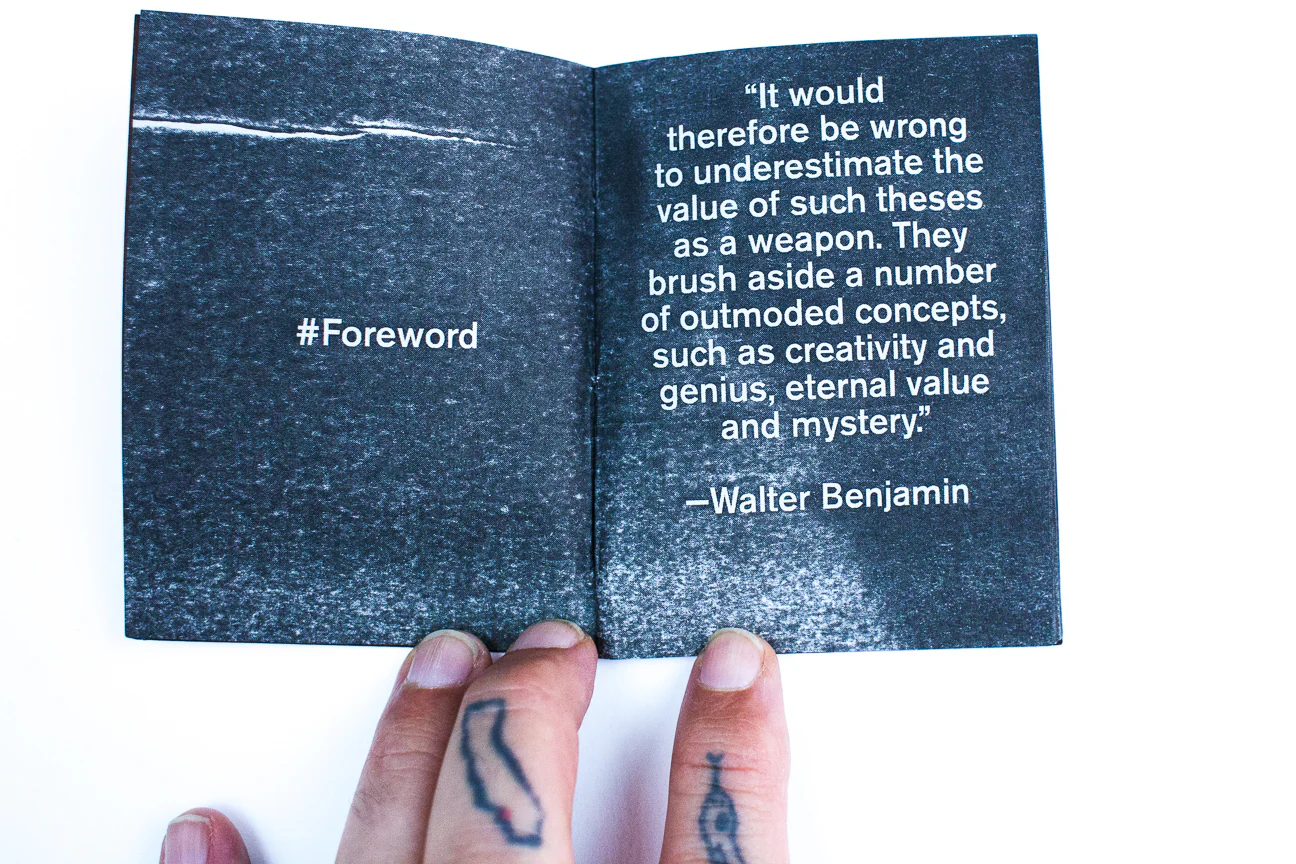 #Foreword
“It would
therefore be wrong
to underestimate the
value of such theses
as a weapon. They
brush aside a number
of outmoded concepts,
such as creativity and
genius, eternal value
and mystery.”
—Walter Benjamin